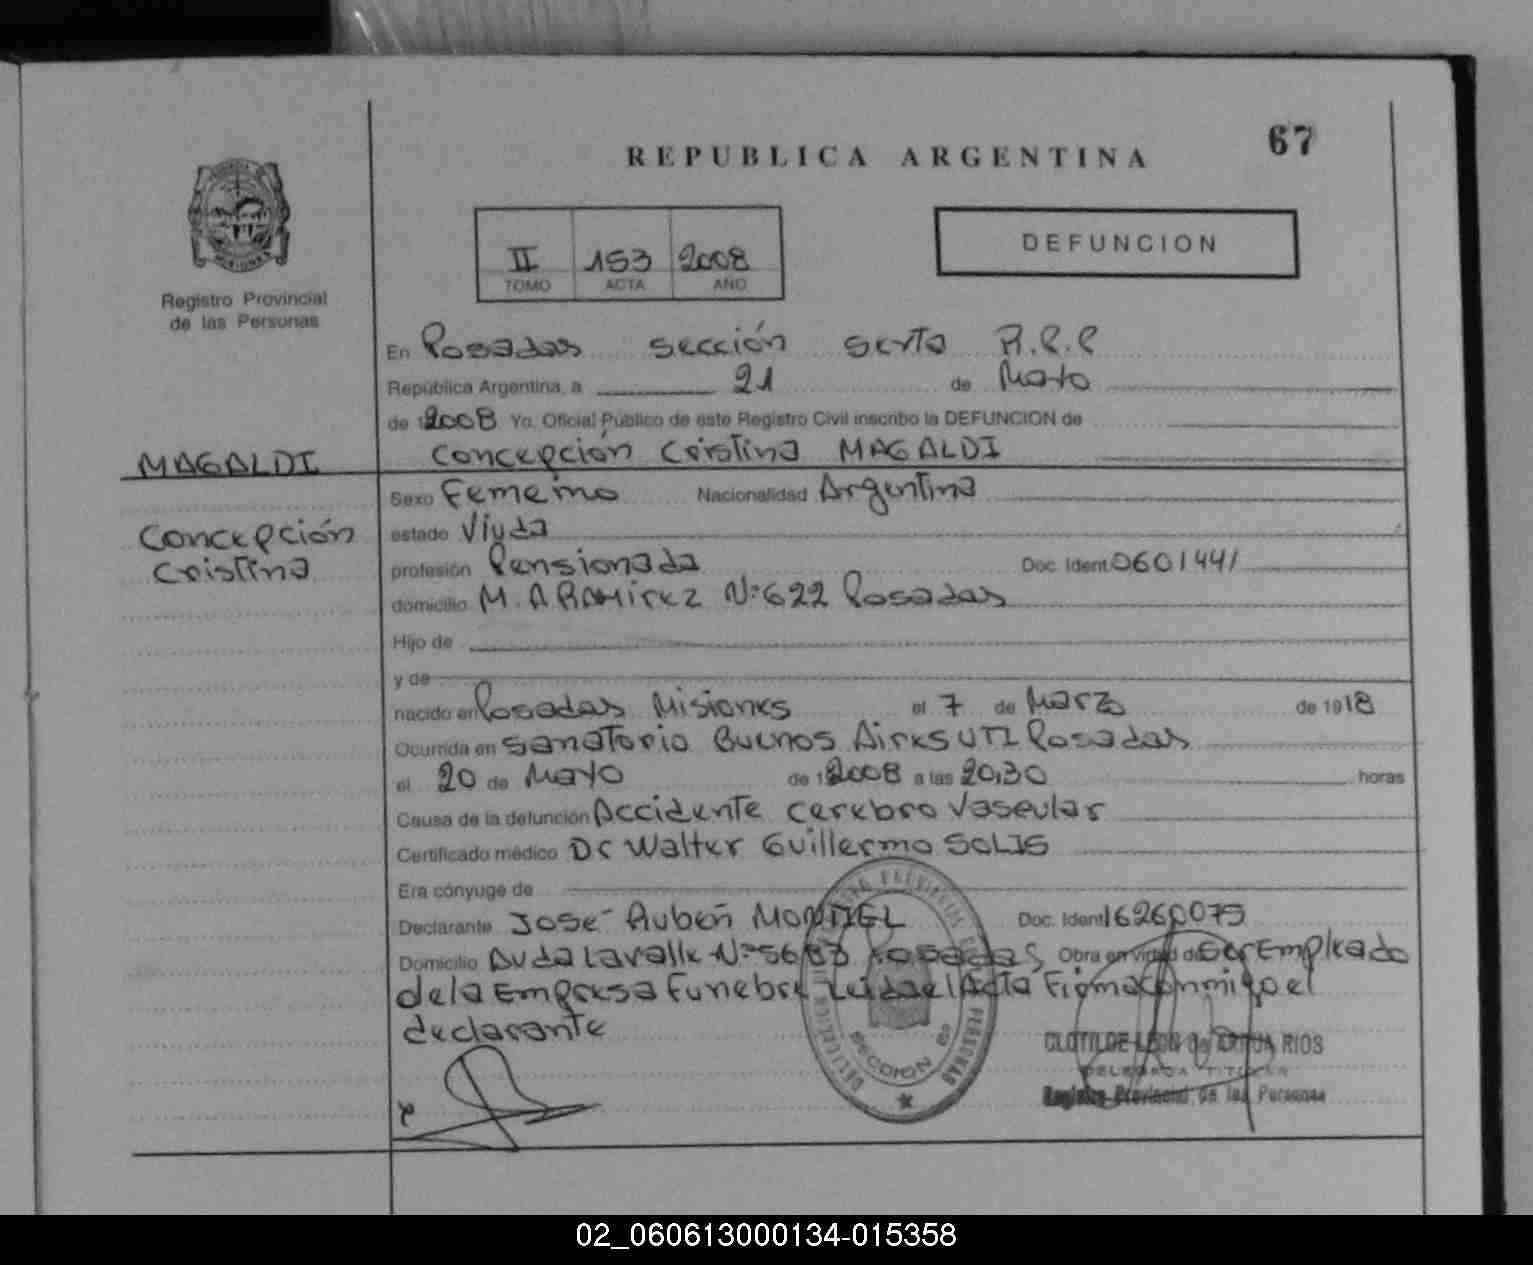 67
REPUBLICA ARGENTINA
II 153 2008
TOMO ACTA AÑO
DEFUNCION
MISIONES
Registro Provincial
de las Personas
En Posadas sección sexta R.P.P
República Argentina, a 21 de Mayo
de 2008 Yo, Oficial Público de este Registro Civil inscribo la DEFUNCION de
MAGALDI
Concepción Cristina
Concepción Cristina MAGALDI
Sexo Femenino Nacionalidad Argentina
estado Viuda
profesión Pensionada Doc. Ident. 0601441
domicilio M. A Ramirez N° 622 Posadas
Hijo de
y de
nacido en Posadas Misiones el 7 de Marzo de 1918
Ocurrida en Sanatorio Buenos Aires UTI Posadas
el 20 de Mayo de 2008 a las 20,30 horas
Causa de la defunción Accidente cerebro Vascular
Certificado médico Dr Walter Guillermo SOLIS
Era cónyuge de
Declarante José Rubén MONTIEL Doc. Ident 16260075
Domicilio Avda Lavalle N° 5683 Posadas Obra en virtud de ser Empleado
de la Empresa Funebre Leida el Acta Firma conmigo el
declarante
SECCION 6°
CLOTILDE LEON de RIOS
DELEGADA TITULAR
Registro Provincial de las Personas
02_060613000134-015358